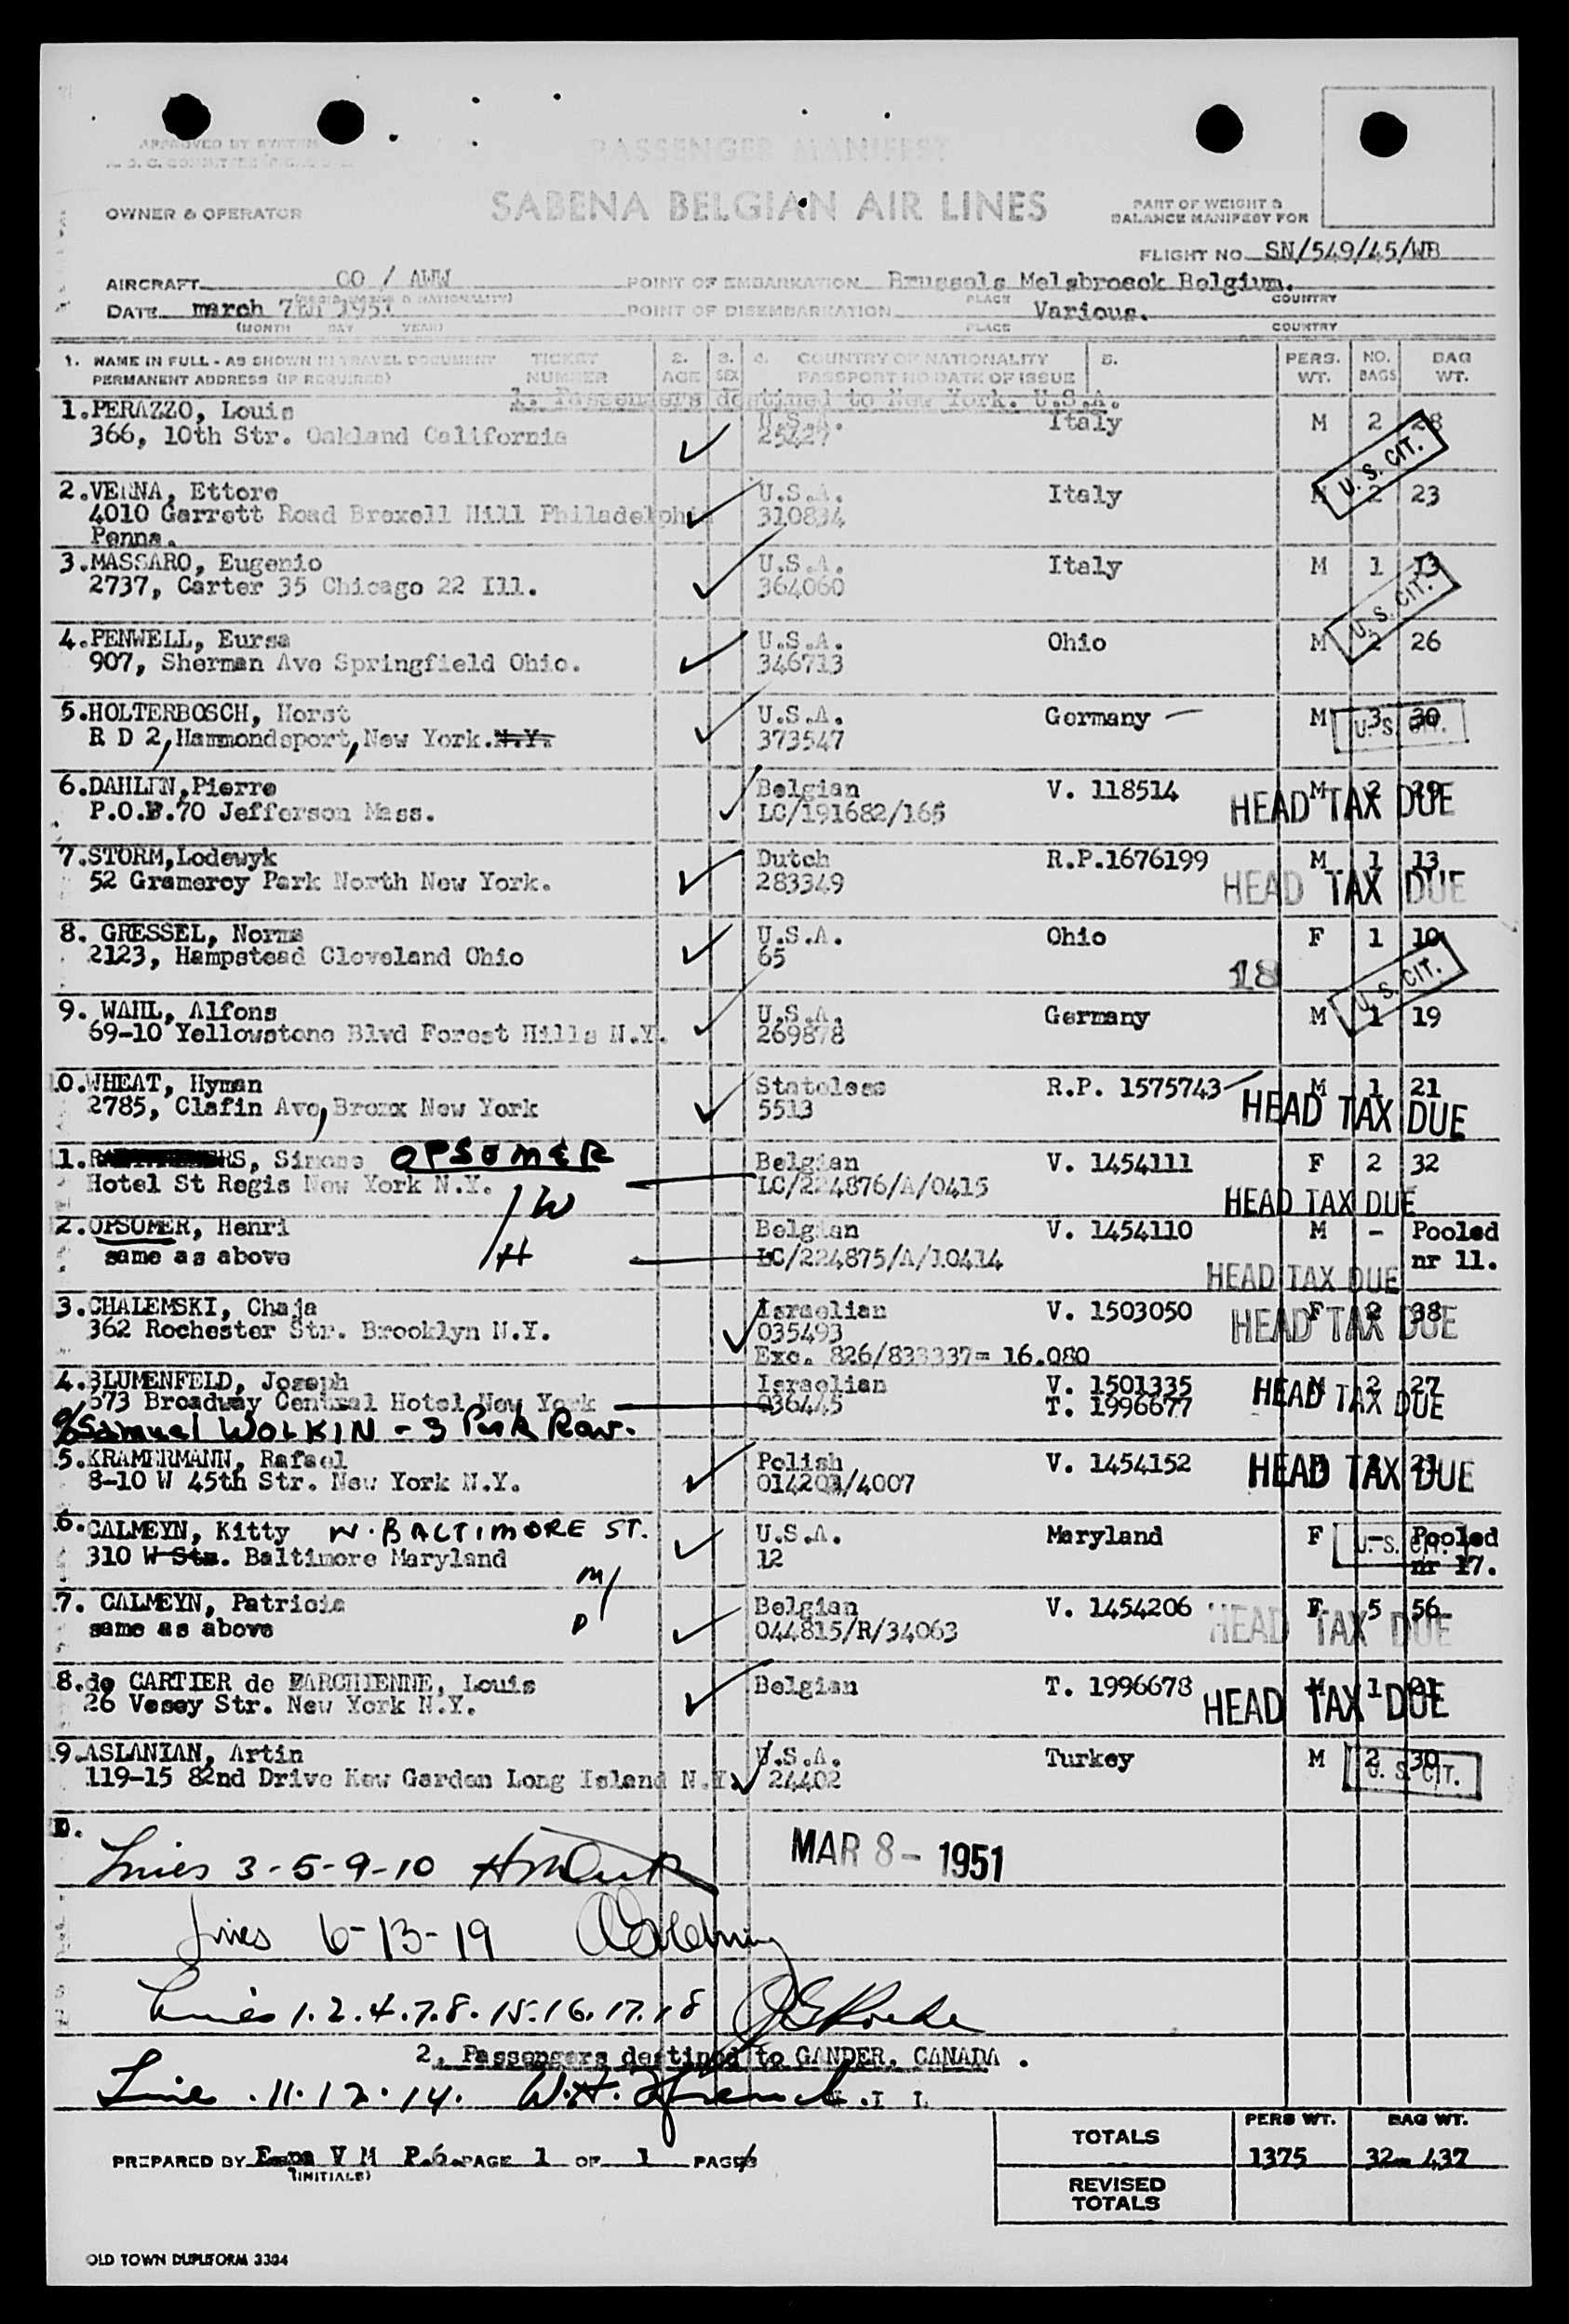 APPROVED BY SYSTEM
PASSENGER MANIFEST
OWNER & OPERATOR
SABENA BELGIAN AIR LINES
PART OF WEIGHT &
BALANCE MANIFEST FOR
FLIGHT NO. SN/549/45/WB
AIRCRAFT OO / AWW
POINT OF EMBARKATION Brussels Melsbroeck Belgium.
DATE march 7th 1951
PLACE COUNTRY
POINT OF DISEMBARKATION Various.
(MONTH DAY YEAR)
PLACE COUNTRY
1. NAME IN FULL - AS SHOWN IN TRAVEL DOCUMENT TICKET 2. 3. 4. COUNTRY OF NATIONALITY 5. PERS. NO. BAG
PERMANENT ADDRESS (IF REQUIRED) NUMBER AGE SEX PASSPORT NO DATE OF ISSUE WT. BAGS WT.
1. Passengers destined to New York. U.S.A.
1.PERAZZO, Louis U.S.A. Italy M 2 28
366, 10th Str. Oakland California 25427
U. S. CIT.
2.VERNA, Ettore U.S.A. Italy M 2 23
4010 Garrett Road Brexell Hill Philadelphia 310834
Penna.
3.MASSARO, Eugenio U.S.A. Italy M 1 13
2737, Carter 35 Chicago 22 Ill. 364060
U. S. CIT.
4.PENWELL, Eursa U.S.A. Ohio M 2 26
907, Sherman Ave Springfield Ohio. 346713
5.HOLTERBOSCH, Horst U.S.A. Germany M 3 30
R D 2, Hammondsport, New York. N.Y. 373547
U. S. CIT.
6.DAHLIN,Pierre Belgian V. 118514 M 2 29
P.O.B.70 Jefferson Mass. LC/191682/165
HEAD TAX DUE
7.STORM,Lodewyk Dutch R.P.1676199 M 1 13
52 Gramercy Park North New York. 283349
HEAD TAX DUE
8. GRESSEL, Norma U.S.A. Ohio F 1 10
2123, Hampstead Cleveland Ohio 65
18
U. S. CIT.
9. WAHL, Alfons U.S.A. Germany M 1 19
69-10 Yellowstone Blvd Forest Hills N.Y. 269878
0.WHEAT, Hyman Stateless R.P. 1575743 M 1 21
2785, Clafin Ave, Bronx New York 5513
HEAD TAX DUE
1. RS, Simone OPSOMER Belgian V. 1454111 F 2 32
Hotel St Regis New York N.Y. LC/224876/A/0415
/W
HEAD TAX DUE
2.OPSOMER, Henri Belgian V. 1454110 M - Pooled
same as above /H LC/224875/A/10414 nr 11.
HEAD TAX DUE
3.CHALEMSKI, Chaja Israelian V. 1503050 F 2 38
362 Rochester Str. Brooklyn N.Y. 035493
HEAD TAX DUE
Exc. 826/833337= 16.080
4.BLUMENFELD, Joseph Israelian V. 1501335 M 2 27
673 Broadway Central Hotel New York 036445 T. 1996677
HEAD TAX DUE
c/o Samuel WOLKIN - 3 Park Row.
5.KRAMERMANN, Rafael Polish V. 1454152
8-10 W 45th Str. New York N.Y. 014203/4007
HEAD TAX DUE
6.CALMEYN, Kitty W. BALTIMORE ST. U.S.A. Maryland F - Pooled
310 W Str. Baltimore Maryland 12 nr 17.
U. S. CIT.
M/
7. CALMEYN, Patricia D Belgian V. 1454206 F 5 56
same as above 044815/R/34063
HEAD TAX DUE
8.de CARTIER de MARCHIENNE, Louis Belgian T. 1996678 M 1 21
26 Vesey Str. New York N.Y.
HEAD TAX DUE
9.ASLANIAN, Artin U.S.A. Turkey M 2 30
119-15 82nd Drive Kew Garden Long Island N.Y. 24402
U. S. CIT.
0.
MAR 8 - 1951
Lines 3-5-9-10
Lines 6-13-19
Lines 1.2.4.7.8.15.16.17.18
2. Passengers destined to GANDER, CANADA .
Line .11.12.14. W.H. French
N.I L
TOTALS
PERS WT. BAG WT.
1375 32= 437
PREPARED BY V M P.6. PAGE 1 OF 1 PAGES
(INITIALS)
REVISED
TOTALS
OLD TOWN DUPLIFORM 3304